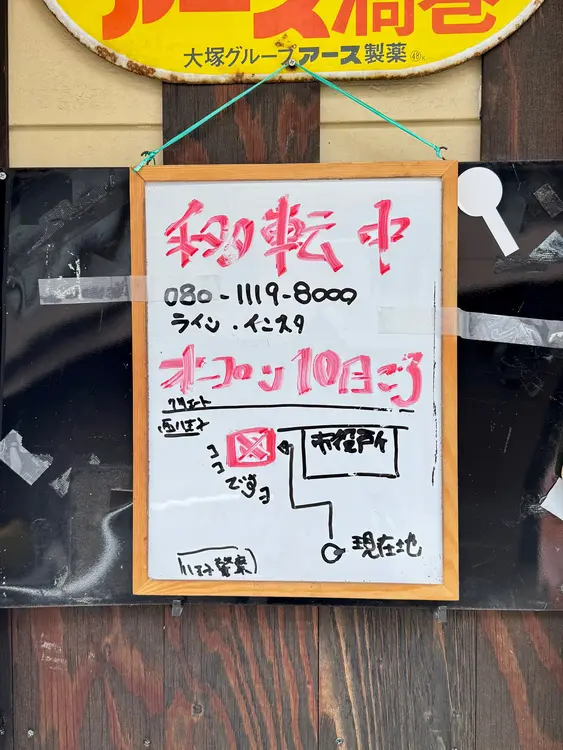 アース渦巻
大塚グループ アース製薬
移転中
080-1119-8000
ライン・インスタ
オープン10日ごろ
西八王子
市役所
ココですョ
現在地
八王子警察